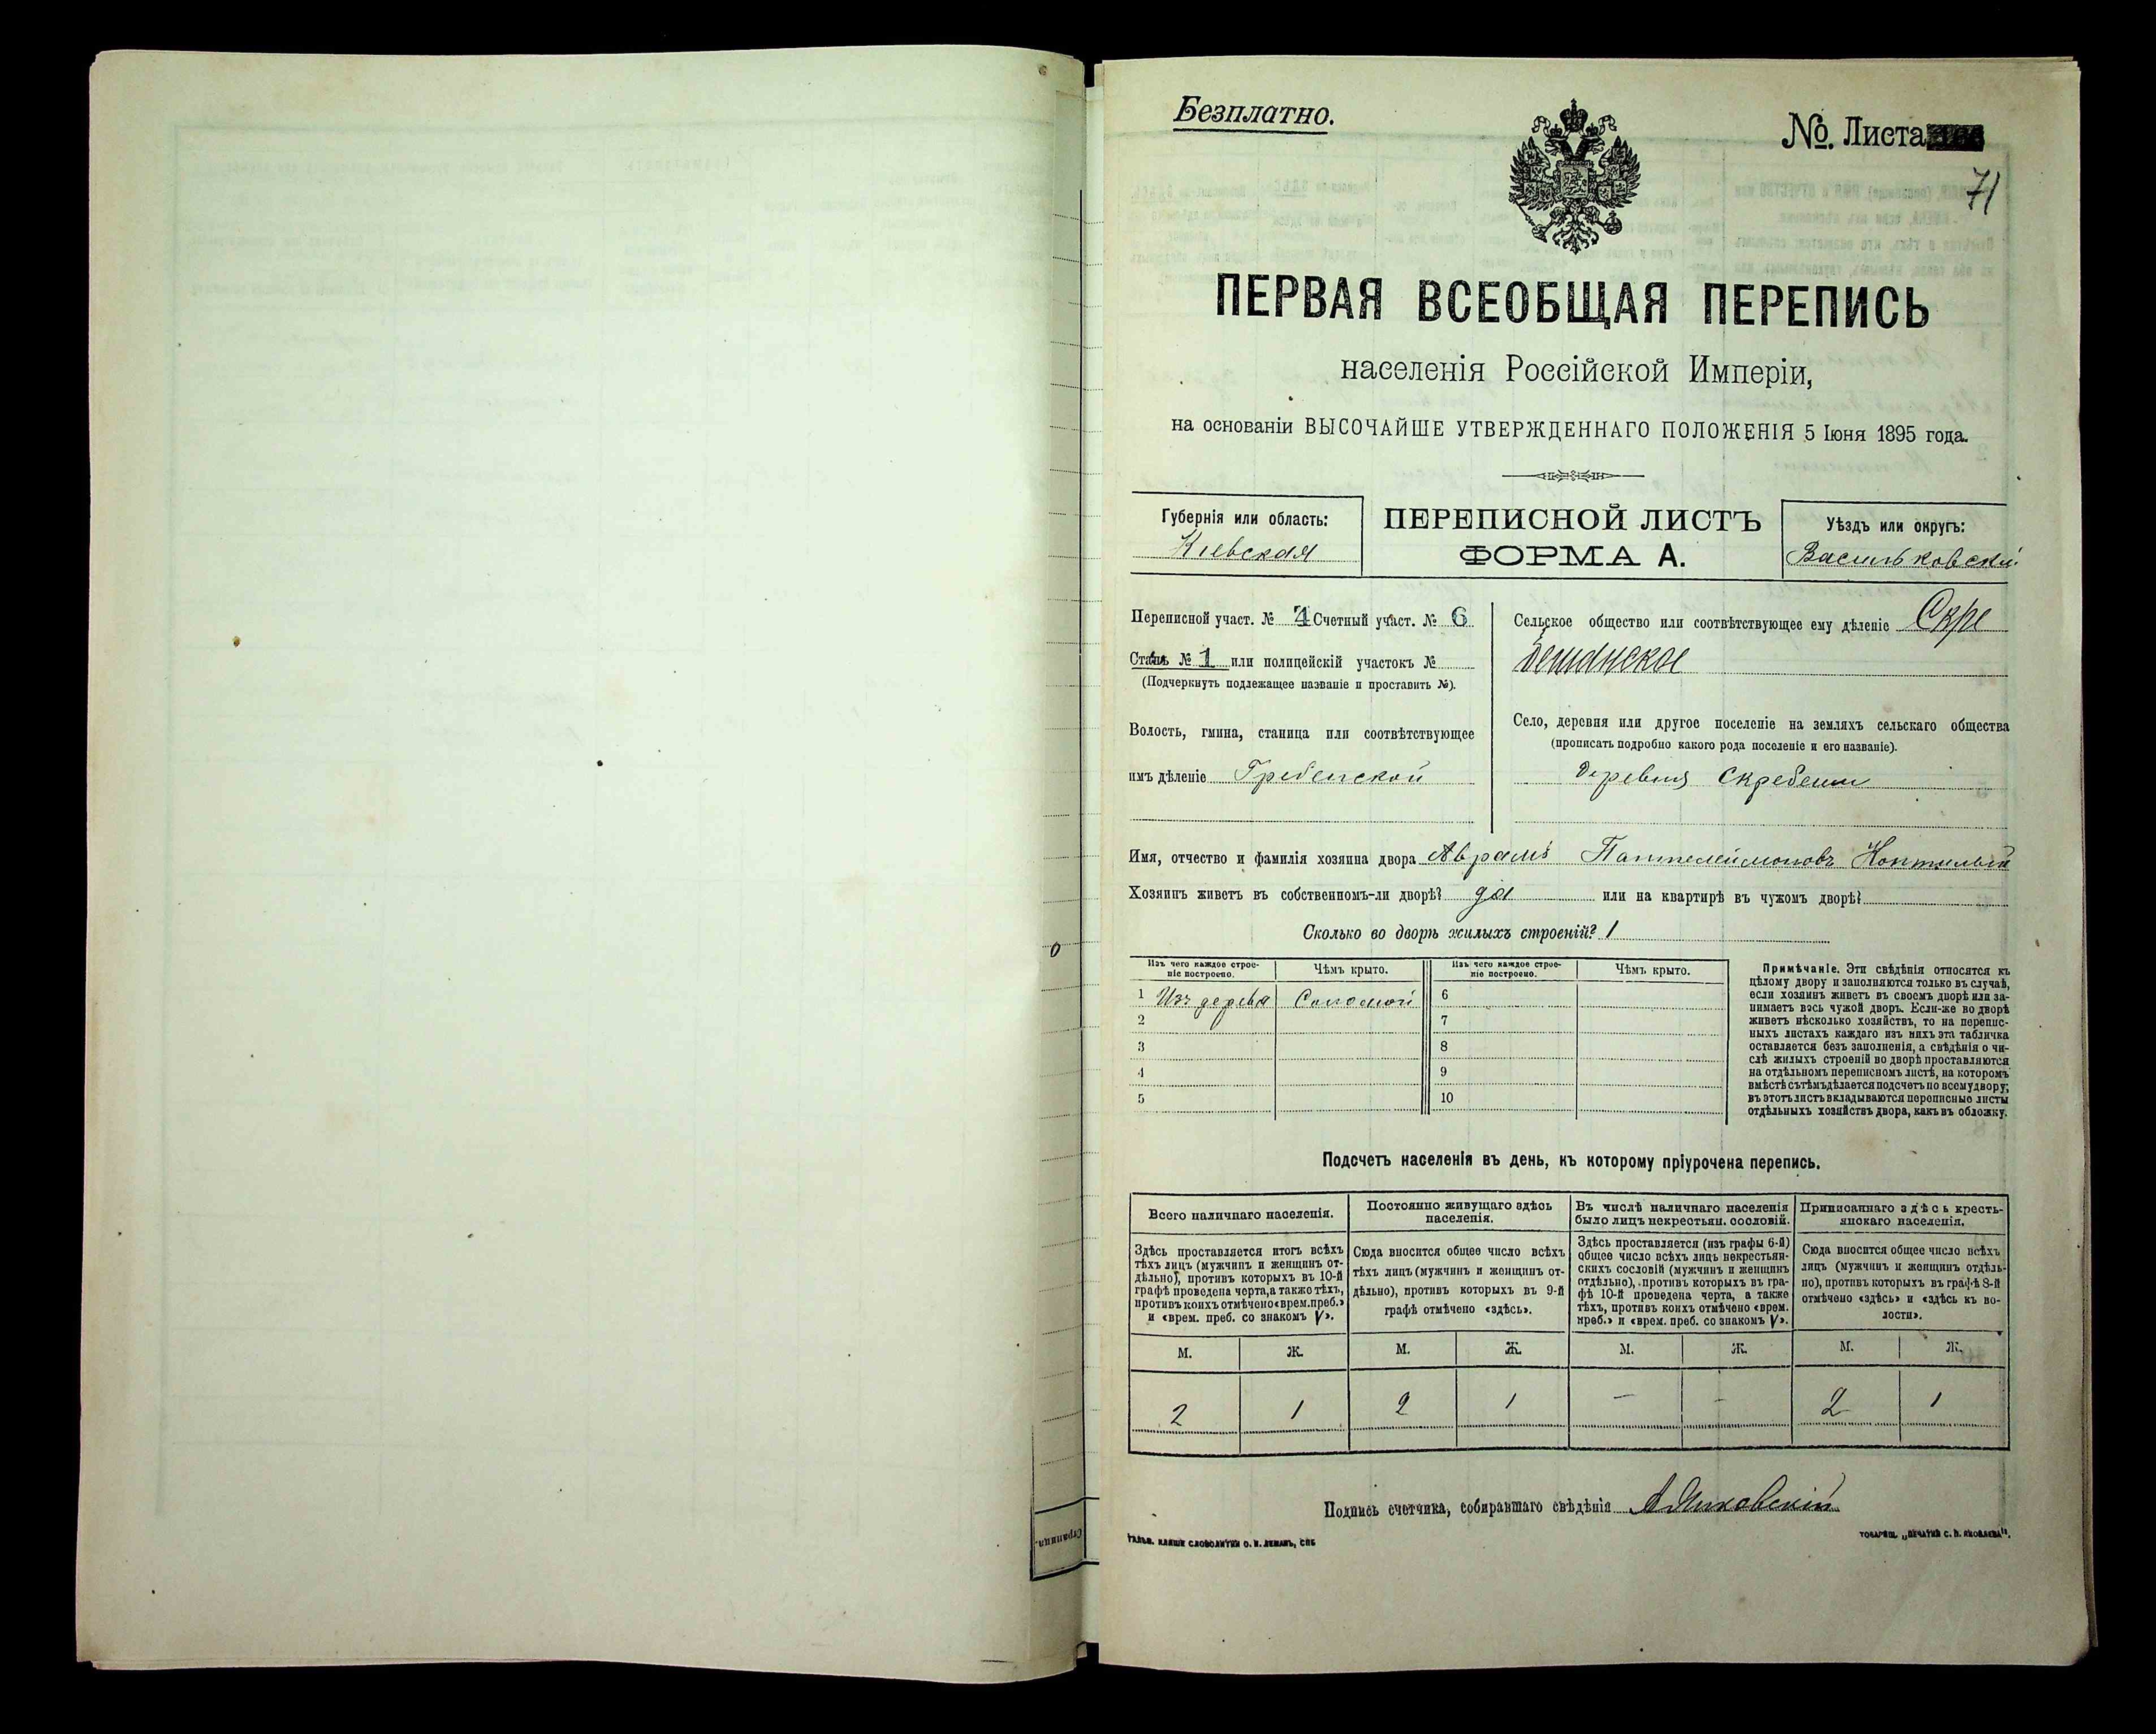 Безплатно.
№. Листа
71
ПЕРВАЯ ВСЕОБЩАЯ ПЕРЕПИСЬ
населенія Россійской Имперіи,
на основаніи ВЫСОЧАЙШЕ УТВЕРЖДЕННАГО ПОЛОЖЕНІЯ 5 Іюня 1895 года.
Губернія или область:
Кіевская
ПЕРЕПИСНОЙ ЛИСТЪ
ФОРМА А.
Уѣздъ или округъ:
Васильковскій
Переписной участ. № 4 Счетный участ. № 6
Станъ № 1 или полицейскій участокъ №
(Подчеркнуть подлежащее названіе и проставить №).
Волость, гмина, станица или соотвѣтствующее
имъ дѣленіе Гребенской
Сельское общество или соотвѣтствующее ему дѣленіе Скре
бешанское
Село, деревня или другое поселеніе на земляхъ сельскаго общества
(прописать подробно какого рода поселеніе и его названіе).
деревня Скребеши
Имя, отчество и фамилія хозяина двора Аврамъ Пантелеймоновъ
Хозяинъ живетъ въ собственномъ-ли дворѣ? да или на квартирѣ въ чужомъ дворѣ?
Сколько во дворѣ жилыхъ строеній? 1
Изъ чего каждое строе-
ніе построено.
Чѣмъ крыто.
Изъ чего каждое строе-
ніе построено.
Чѣмъ крыто.
1 Изъ дерева Соломой 6
2 7
3 8
4 9
5 10
Примѣчаніе. Эти свѣдѣнія относятся къ
цѣлому двору и заполняются только въ случаѣ,
если хозяинъ живетъ въ своемъ дворѣ или за-
нимаетъ весь чужой дворъ. Если-же во дворѣ
живетъ нѣсколько хозяйствъ, то на перепис-
ныхъ листахъ каждаго изъ нихъ эта табличка
оставляется безъ заполненія, а свѣдѣнія о чи-
слѣ жилыхъ строеній во дворѣ проставляются
на отдѣльномъ переписномъ листѣ, на которомъ
вмѣстѣ съ тѣмъ дѣлается подсчетъ по всему двору;
въ этотъ листъ вкладываются переписные листы
отдѣльныхъ хозяйствъ двора, какъ въ обложку.
Подсчетъ населенія въ день, къ которому пріурочена перепись.
Всего наличнаго населенія.
Постоянно живущаго здѣсь
населенія.
Въ числѣ наличнаго населенія
было лицъ некрестьян. сословій.
Приписаннаго здѣсь кресть-
янскаго населенія.
Здѣсь проставляется итогъ всѣхъ
тѣхъ лицъ (мужчинъ и женщинъ от-
дѣльно), противъ которыхъ въ 10-й
графѣ проведена черта, а также тѣхъ,
противъ коихъ отмѣчено «врем. преб.»
и «врем. преб. со знакомъ V».
Сюда вносится общее число всѣхъ
тѣхъ лицъ (мужчинъ и женщинъ от-
дѣльно), противъ которыхъ въ 9-й
графѣ отмѣчено «здѣсь».
Здѣсь проставляется (изъ графы 6-й)
общее число всѣхъ лицъ некрестьян-
скихъ сословій (мужчинъ и женщинъ
отдѣльно), противъ которыхъ въ гра-
фѣ 10-й проведена черта, а также
тѣхъ, противъ коихъ отмѣчено «врем.
преб.» и «врем. преб. со знакомъ V».
Сюда вносится общее число всѣхъ
лицъ (мужчинъ и женщинъ отдѣль-
но), противъ которыхъ въ графѣ 8-й
отмѣчено «здѣсь» и «здѣсь къ во-
лости».
М. Ж. М. Ж. М. Ж. М. Ж.
2 1 2 1 – – 2 1
Подпись счетчика, собиравшаго свѣдѣнія
Гальв. клише словолитни О. И. Леманъ, СПБ
Товарищ. „Печатня С. П. Яковлева".
Страница.